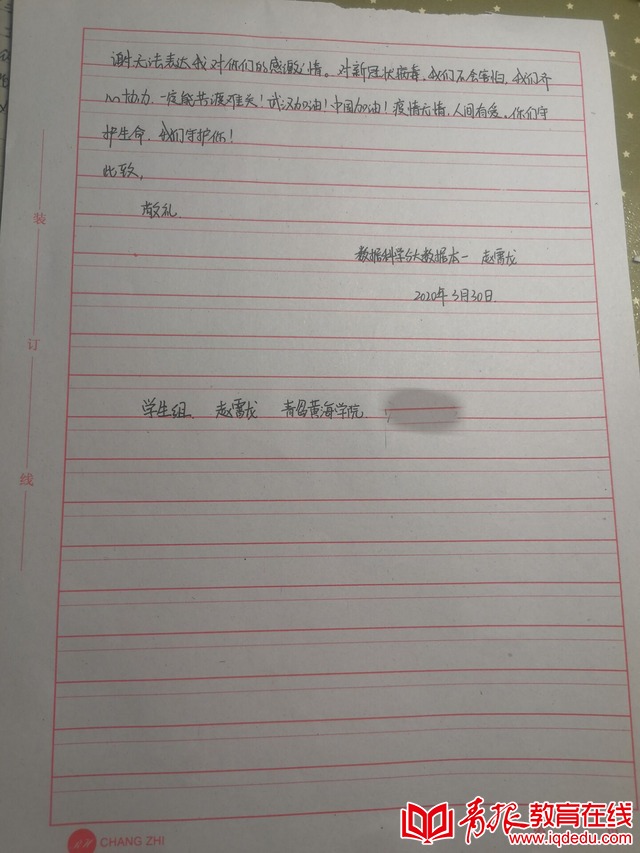 谢无法表达我对你们的感激之情。对新冠状病毒,我们不会害怕,我们齐
心协力,一定能共渡难关!武汉加油!中国加油!疫情无情,人间有爱。你们守
护生命,我们守护你!
此致,
敬礼
数据科学与大数据本一 赵雪龙
2020年3月30日.
学生组 赵雪龙 青岛黄海学院
装
订
线
CHANG ZHI
青报教育在线
www.iqdedu.com